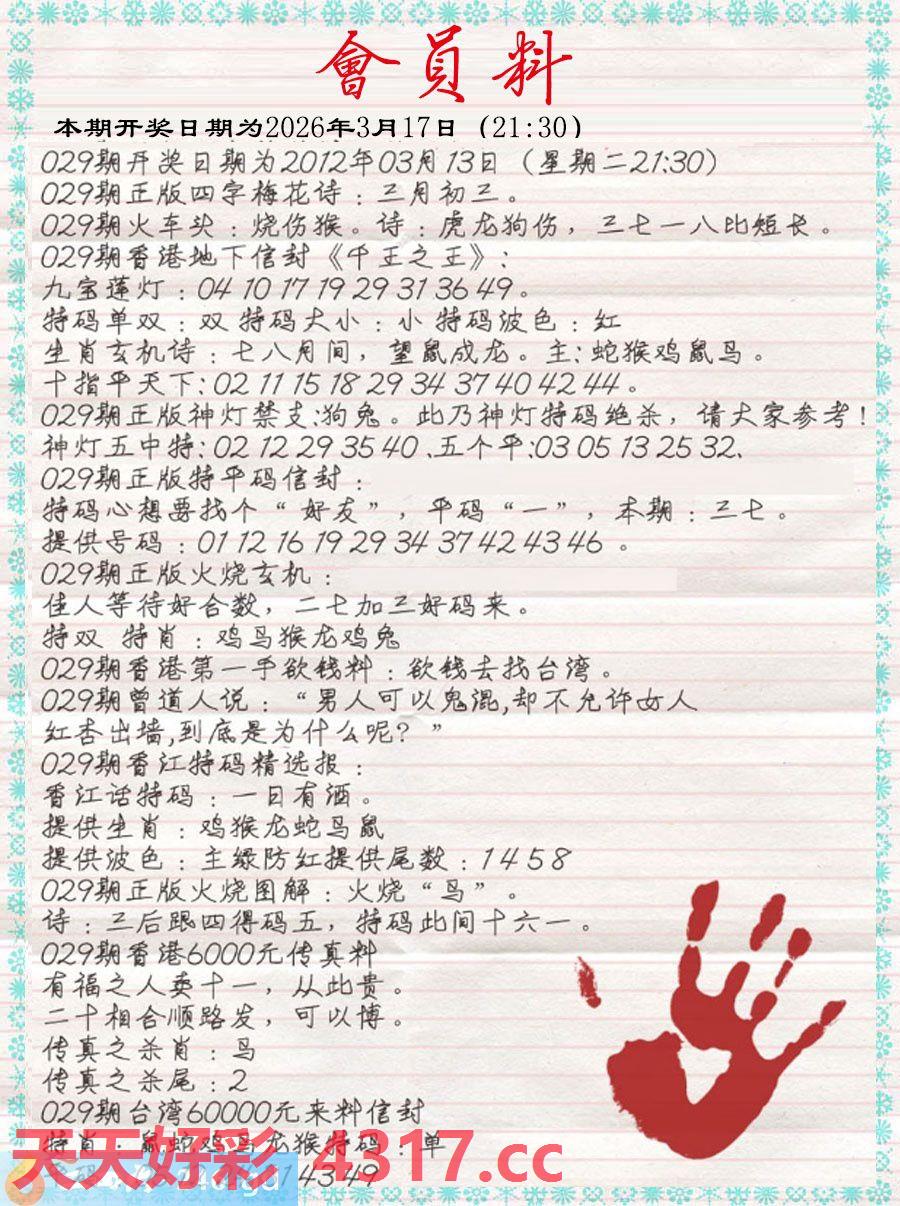 會員料
本期开奖日期为2026年3月17日（21:30）
029期开奖日期为2012年03月13日（星期二21:30）
029期正版四字梅花诗：三月初三。
029期火车头：烧伤猴。诗：虎龙狗伤，三七一八比短长。
029期香港地下信封《千王之王》：
九宝莲灯：04 10 17 19 29 31 36 49。
特码单双：双 特码大小：小 特码波色：红
生肖玄机诗：七八月间，望鼠成龙。主：蛇猴鸡鼠鸟。
十指平天下：02 11 15 18 29 34 37 40 42 44。
029期正版神灯禁支:狗兔。此乃神灯特码绝杀，请大家参考！
神灯五中特：02 12 29 35 40、五个平:03 05 13 25 32、
029期正版特平码信封：
特码心想要找个“好友”，平码“一”，本期：三七。
提供号码：01 12 16 19 29 34 37 42 43 46 。
029期正版火烧玄机：
佳人等待好合数，二七加三好码来。
特双 特肖：鸡鸟猴龙鸡兔
029期香港第一手欲钱料：欲钱去找台湾。
029期曾道人说：“男人可以鬼混,却不允许女人
红杏出墙,到底是为什么呢？”
029期香江特码精选报：
香江话特码：一日有酒。
提供生肖：鸡猴龙蛇鸟鼠
提供波色：主绿防红提供尾数：1 4 5 8
029期正版火烧图解：火烧“鸟”。
诗：三后跟四得码五，特码此间十六一。
029期香港6000元传真料
有福之人卖十一，从此贵。
二十相合顺路发，可以博。
传真之杀肖：鸟
传真之杀尾：2
029期台湾60000元来料信封
特肖：鼠蛇鸡鸟龙猴特码：单
天天好彩 4317.cc
43 49